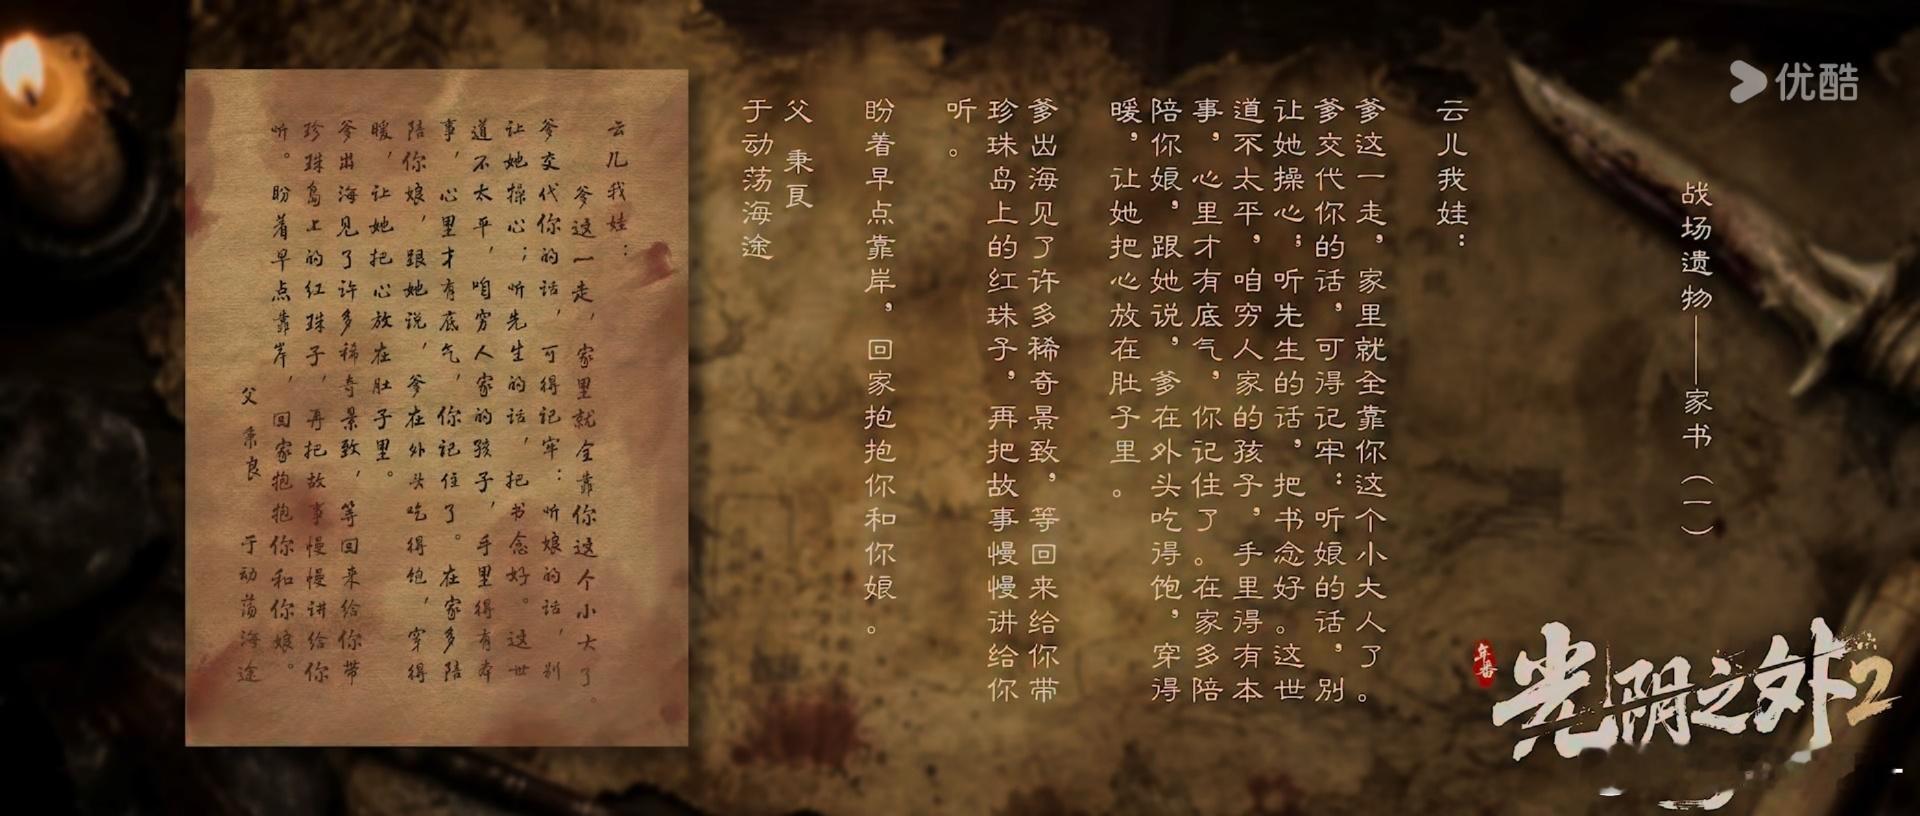 优酷
战场遗物——家书（一）
云儿我娃：
爹这一走，家里就全靠你这个小大人了。
爹交代你的话，可得记牢：听娘的话，别
让她操心；听先生的话，把书念好。这世
道不太平，咱穷人家的孩子，手里得有本
事，心里才有底气，你记住了。在家多陪
陪你娘，跟她说，爹在外头吃得饱，穿得
暖，让她把心放在肚子里。
爹出海见了许多稀奇景致，等回来给你带
珍珠岛上的红珠子，再把故事慢慢讲给你
听。
盼着早点靠岸，回家抱抱你和你娘。
父 秉良
于动荡海途
云儿我娃：
爹这一走，家里就全靠你这个小大了。
爹交代你的话，可得记牢：听娘的话，别
让她操心；听先生的话，把书念好。这世
道不太平，咱穷人家的孩子，手里得有本
事，心里才有底气，你记住了。在家多陪
陪你娘，跟她说，爹在外头吃得饱，穿得
暖，让她把心放在肚子里。
爹出海见了许多稀奇景致，等回来给你带
珍珠岛上的红珠子，再把故事慢慢讲给你
听。盼着早点靠岸，回家抱抱你和你娘。
父 秉良 于动荡海途
年番
光阴之外2